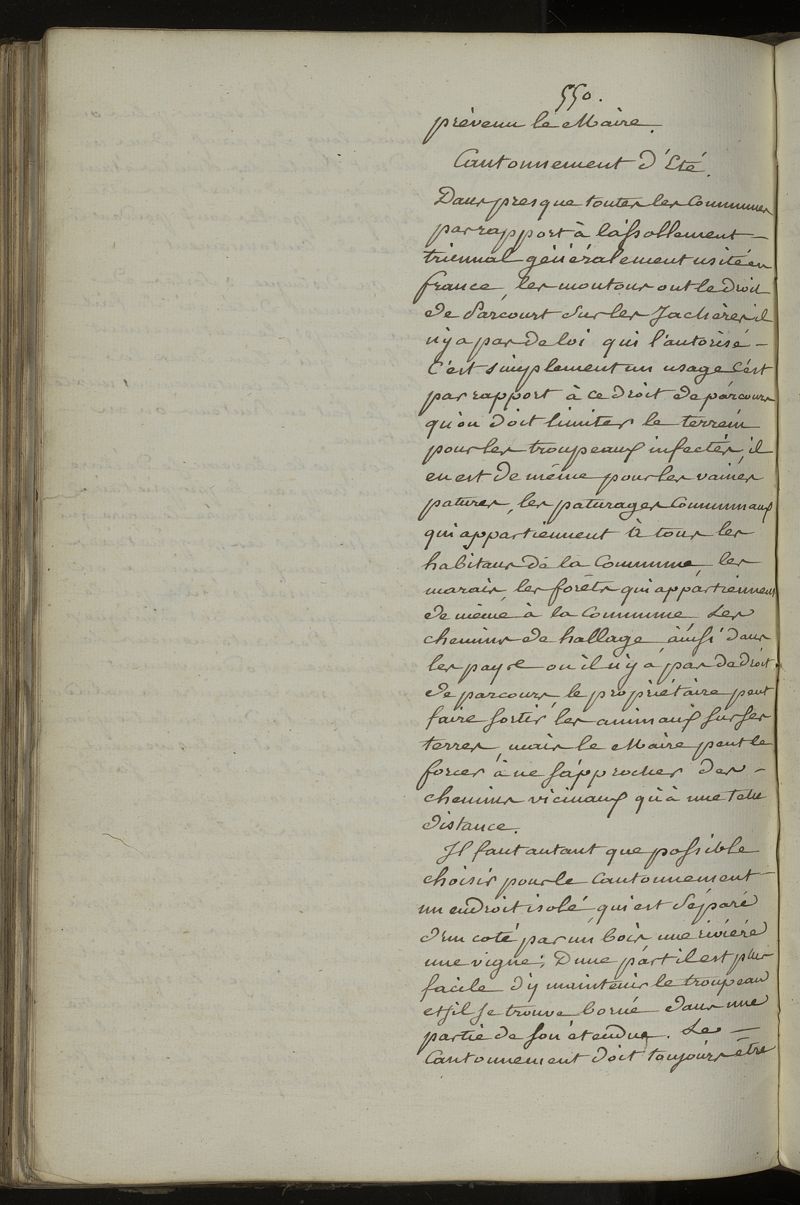 550.
prévenu le Maire.
Cantonnement d'Eté.
Dans presque toutes les Communes
par rapport à l'assollement —
triennal généralement usité en
france, les moutons ont le droit
de Parcourt sur les Jachères il
n'y a pas de loi qui l'autorise —
C'est simplement un usage C'est
par rapport à ce droit de parcours
qu'on doit limiter le terrein
pour les troupeaux infectés, il
en est de même pour les vaines
patures, les paturages Communaux
qui appartiennent à tous les
habitans de la Commune les
marais, les forêts qui appartiennent
de même à la Commune Les
chemins de hallage ainsi dans
les pays où il n'y a pas de droit
de parcours, le propriétaire peut
faire sortir les animaux sur ses
terres, mais le Maire peut le
forcer à ne s'approcher des —
chemins vicinaux qu'à une telle
distance.
Il faut autant que possible
choisir pour le Cantonnement
un endroit isolé qui est séparé
d'un coté par un bois une rivière
une vigne; D'une part il est plus
facile d'y maintenir le troupeau
et s'il se trouve borné dans une
partie de son étendue. Le —
Cantonnement doit toujours être